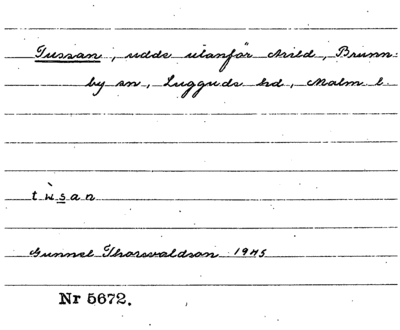 Tussan, udde utanför Arild, Brunn-
by sn, Lugguds hd, Malm l.
tùsan
Gunnel Thorsvaldson 1975
Nr 5672.